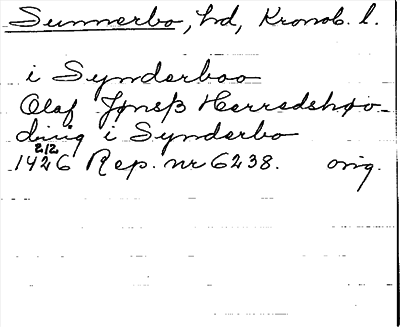 Sunnerbo, hd, Kronob. l.
i Synderboo
Olaf Jønsβ Herredshøv-
ding i Synderbo
2/2
1426 Rep. nr 6238. orig.